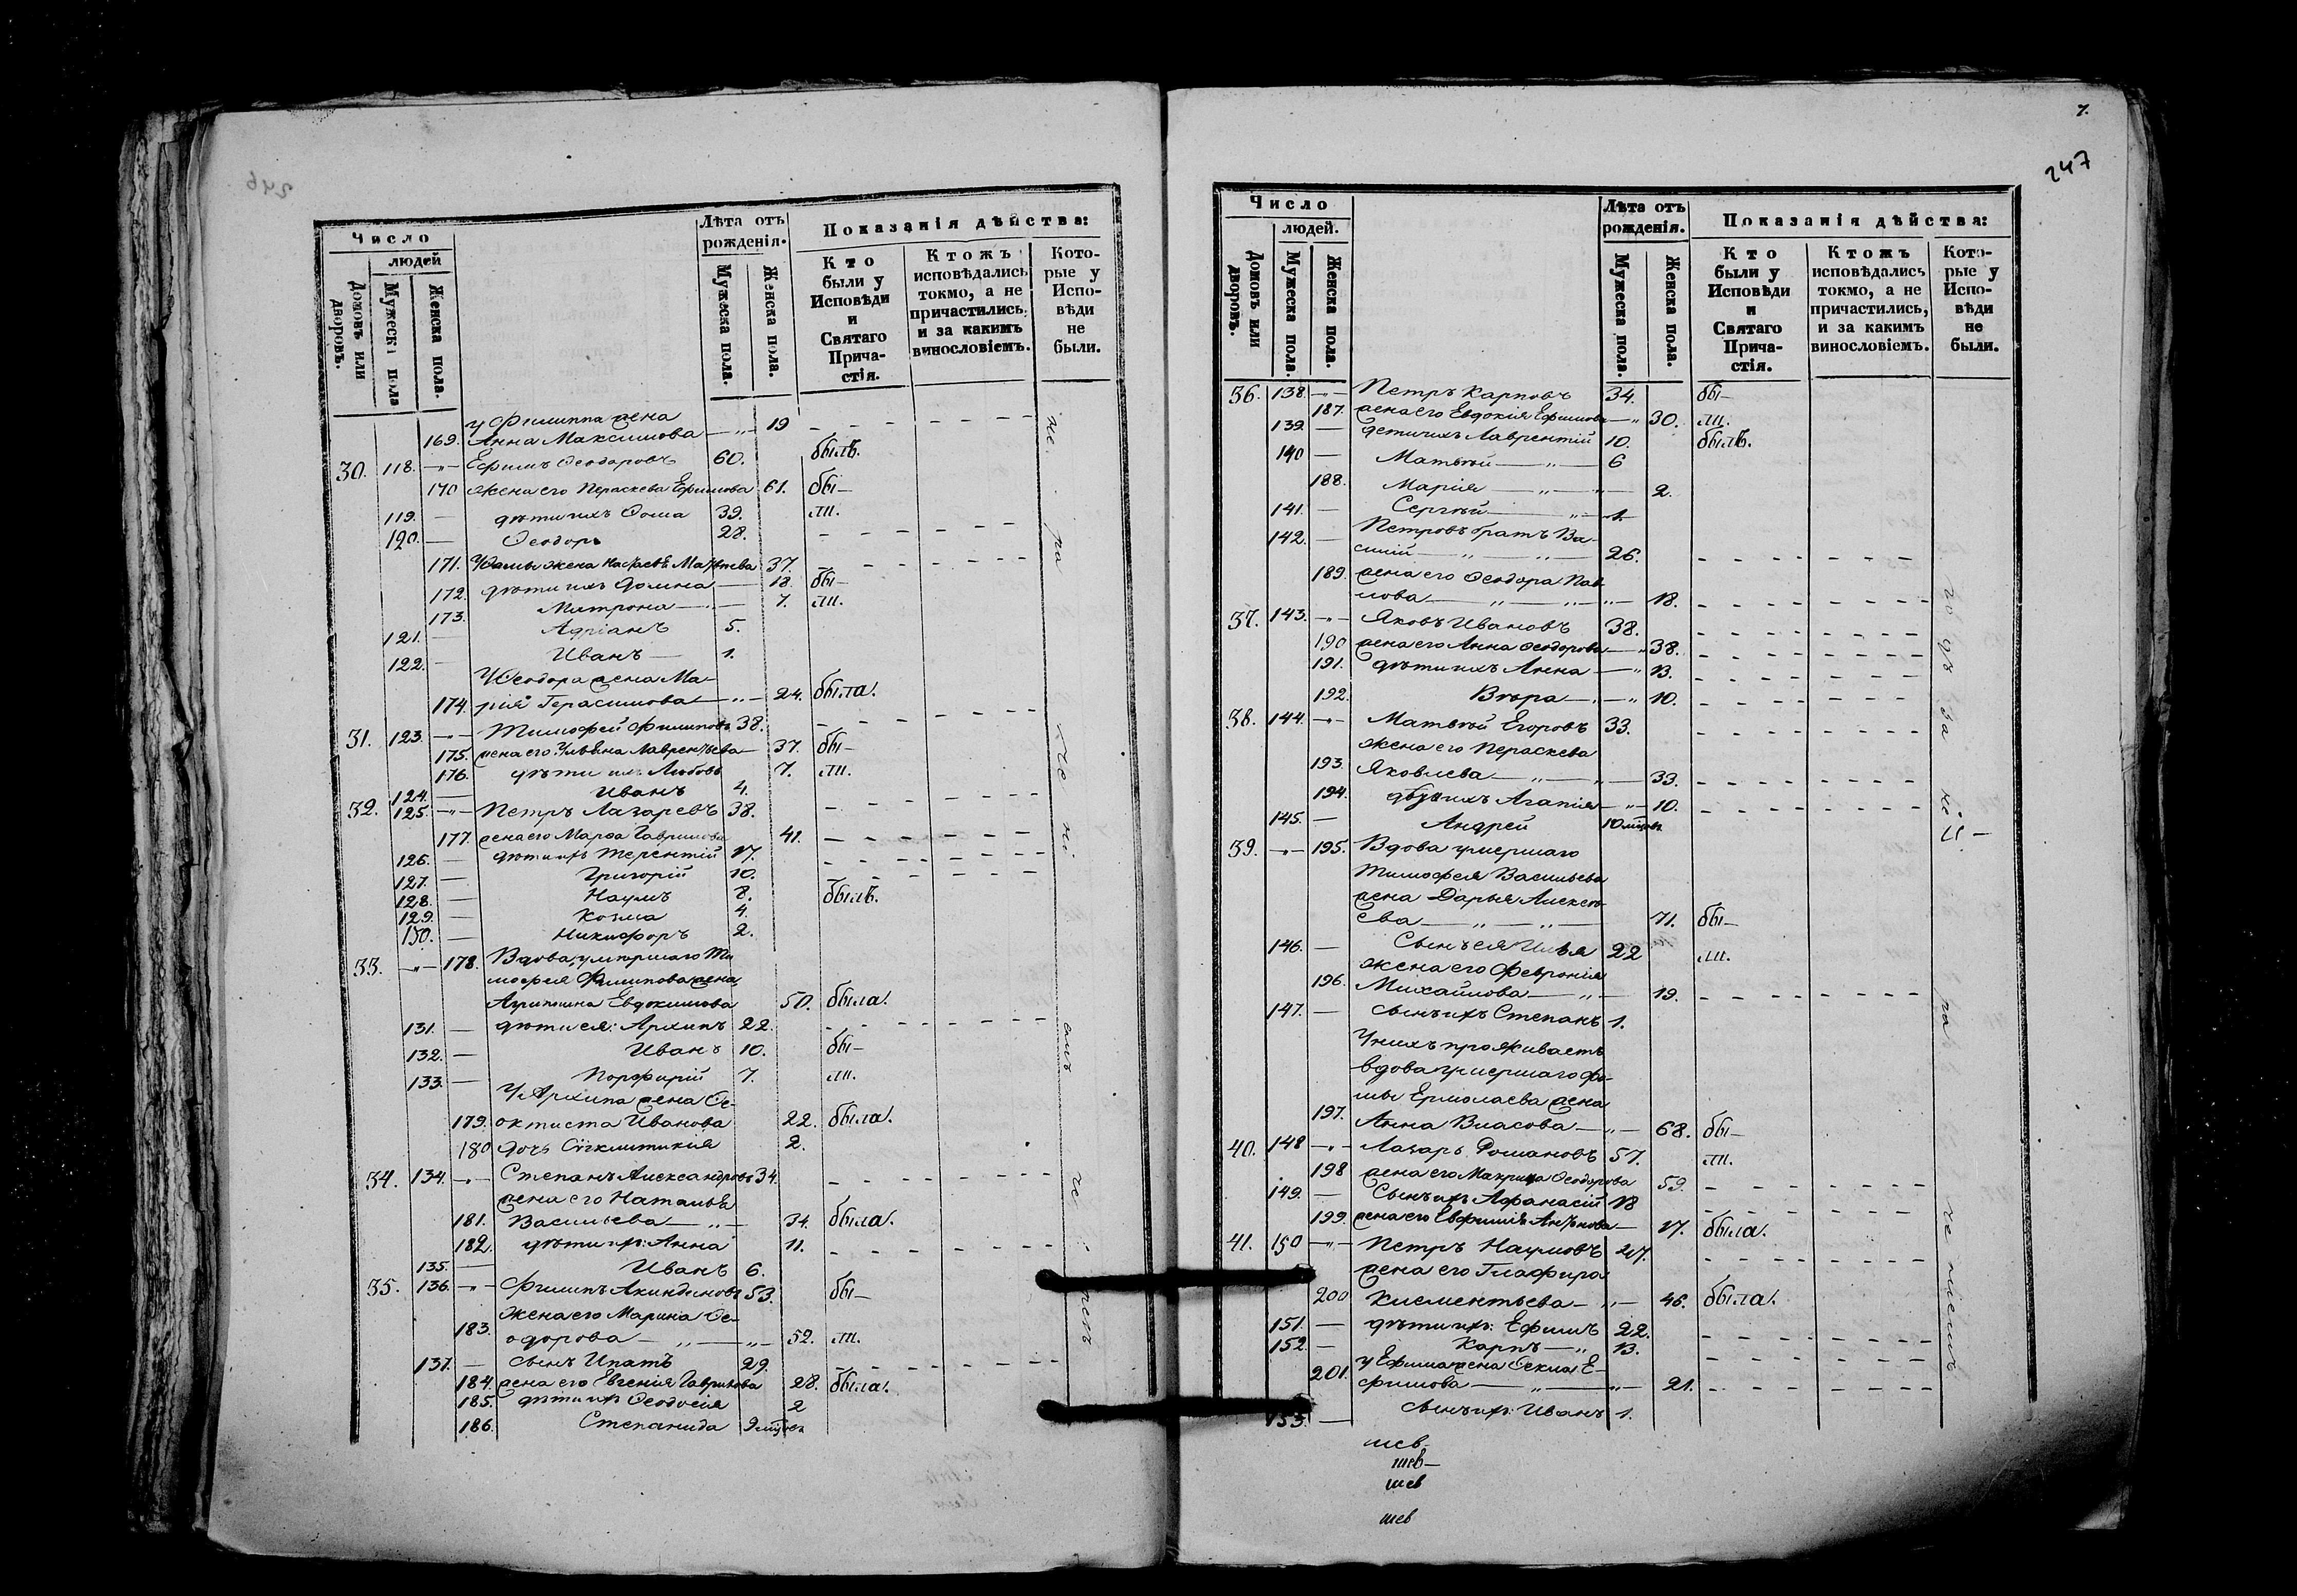 246
Число
людей
Домовъ или дворовъ.
Мужеска пола
Женска пола.
Лѣта отъ рожденія.
Мужеска пола.
Женска пола.
Показанія дѣйства:
Кто были у Исповѣди и Святаго Причастія.
Ктожъ исповѣдались токмо, а не причастились, и за какимъ винословіемъ.
Которые у Исповѣди не были.
у Филиппа жена
169. Анна Максимова — „ — 19
30. 118. — „ — Ефимъ Ѳеодоровъ 60. былъ.
170 жена его Параскева Ефимова 61. бы—
119. — дѣти ихъ Ѳома 39. ли.
120. — Ѳеодоръ 28.
171. У Ѳомы жена Настасья Матвѣева 37.
172. дѣти ихъ Домна — 18. бы—
173. Матрона — 7. ли.
121. — Адріанъ 5.
122. — Иванъ — 1.
У Ѳеодора жена Ма-
174. рія Герасимова — „ — 24. была.
31. 123. — „ — Тимофей Филиповъ 38.
175. жена его Ульяна Лаврентьева — 37. бы—
176. дѣти ихъ Любовь 7. ли.
124. — Иванъ 4.
32. 125. — „ — Петръ Лазаревъ 38.
177. жена его Марѳа Гаврилова 41.
126. — дѣти ихъ Терентій 17.
127. — Григорій 10.
128. — Наумъ 8. былъ.
129. — Козма 4.
130. — Никифоръ 2.
33. — „ — 178. Вдова умершаго Ти-
мофея Филипова жена
Агрипина Евдокимова 50. была.
131. — дѣти ея: Архипъ 22.
132. — Иванъ 10. бы—
133. — Порфирій 7. ли.
У Архипа жена Ѳе-
179. октиста Иванова 22. была.
180 дочь 2.
34. 134. — „ — Степанъ Александровъ 34.
жена его Наталья
181. Васильева — „ — 34. была.
182. дѣти ихъ: Анна 11.
135. — Иванъ 6.
35. 136. — „ — Филипъ Акиндиновъ 53. бы—
жена его Марина Ѳе-
183. одорова — „ — „ — 52. ли.
137. — сынъ Ипатъ 29.
184. жена его Евгенія Гаврилова 28. была.
185. дѣти ихъ Ѳеодосія 2
186. Степанида 9 мѣсяц
7.
247
Число
людей.
Домовъ или дворовъ.
Мужеска пола.
Женска пола.
Лѣта отъ рожденія.
Мужеска пола.
Женска пола.
Показанія дѣйства:
Кто были у Исповѣди и Святаго Причастія.
Ктожъ исповѣдались токмо, а не причастились, и за какимъ винословіемъ.
Которые у Исповѣди не были.
36. 138. — „ — Петръ Карповъ 34. бы—
187. жена его Евдокія Ефимова — „ 30. ли.
139. — дѣти ихъ Лаврентій 10. былъ.
140 — Матвѣй — „ — 6
188. Марія — „ — „ — 2.
141. — Сергѣй — „ — 1.
142. — Петровъ братъ Ва-
силій — „ — „ — 26.
189. жена его Ѳеодора Пав-
лова — „ — „ — „ — 18.
37. 143. — „ — Яковъ Ивановъ 38.
190 жена его Анна Ѳеодорова — „ 38.
191. дѣти ихъ Анна — „ 13.
192. Вѣра — „ — 10.
38. 144. — „ — Матвѣй Егоровъ 33.
жена его Параскева
193. Яковлева — „ — „ — 33.
194. дѣти ихъ Агапія — „ — 10.
145. — Андрей 10 мѣсяцъ
39. — „ — 195. Вдова умершаго
Тимофея Васильева
жена Дарья Алексѣ-
ева — „ — „ — 71. бы—
146. — Сынъ ея Илья 22 ли.
жена его Февронія
196. Михайлова — „ — 19.
147. — сынъ ихъ Степанъ 1.
У нихъ проживаетъ
вдова умершаго Ѳо-
мы Ермолаева жена
197. Анна Власова — „ — 68. бы—
40. 148 — „ — Лазарь Романовъ 57. ли.
198 жена его Макрина Ѳеодорова 59.
149. — Сынъ ихъ Афанасій 18
199. жена его Евфимія Антонова — 17. была.
41. 150 — „ — Петръ Наумовъ 47.
жена его Глафира
200 Клементьева — „ — 46. была.
151. — дѣти ихъ: Ефимъ 22.
152. — Карпъ — „ 13.
201. у Ефима жена Ѳекла Е-
фимова — „ — „ — 21.
153. — сынъ ихъ: Иванъ 1.
шев
шев—
шев
шев